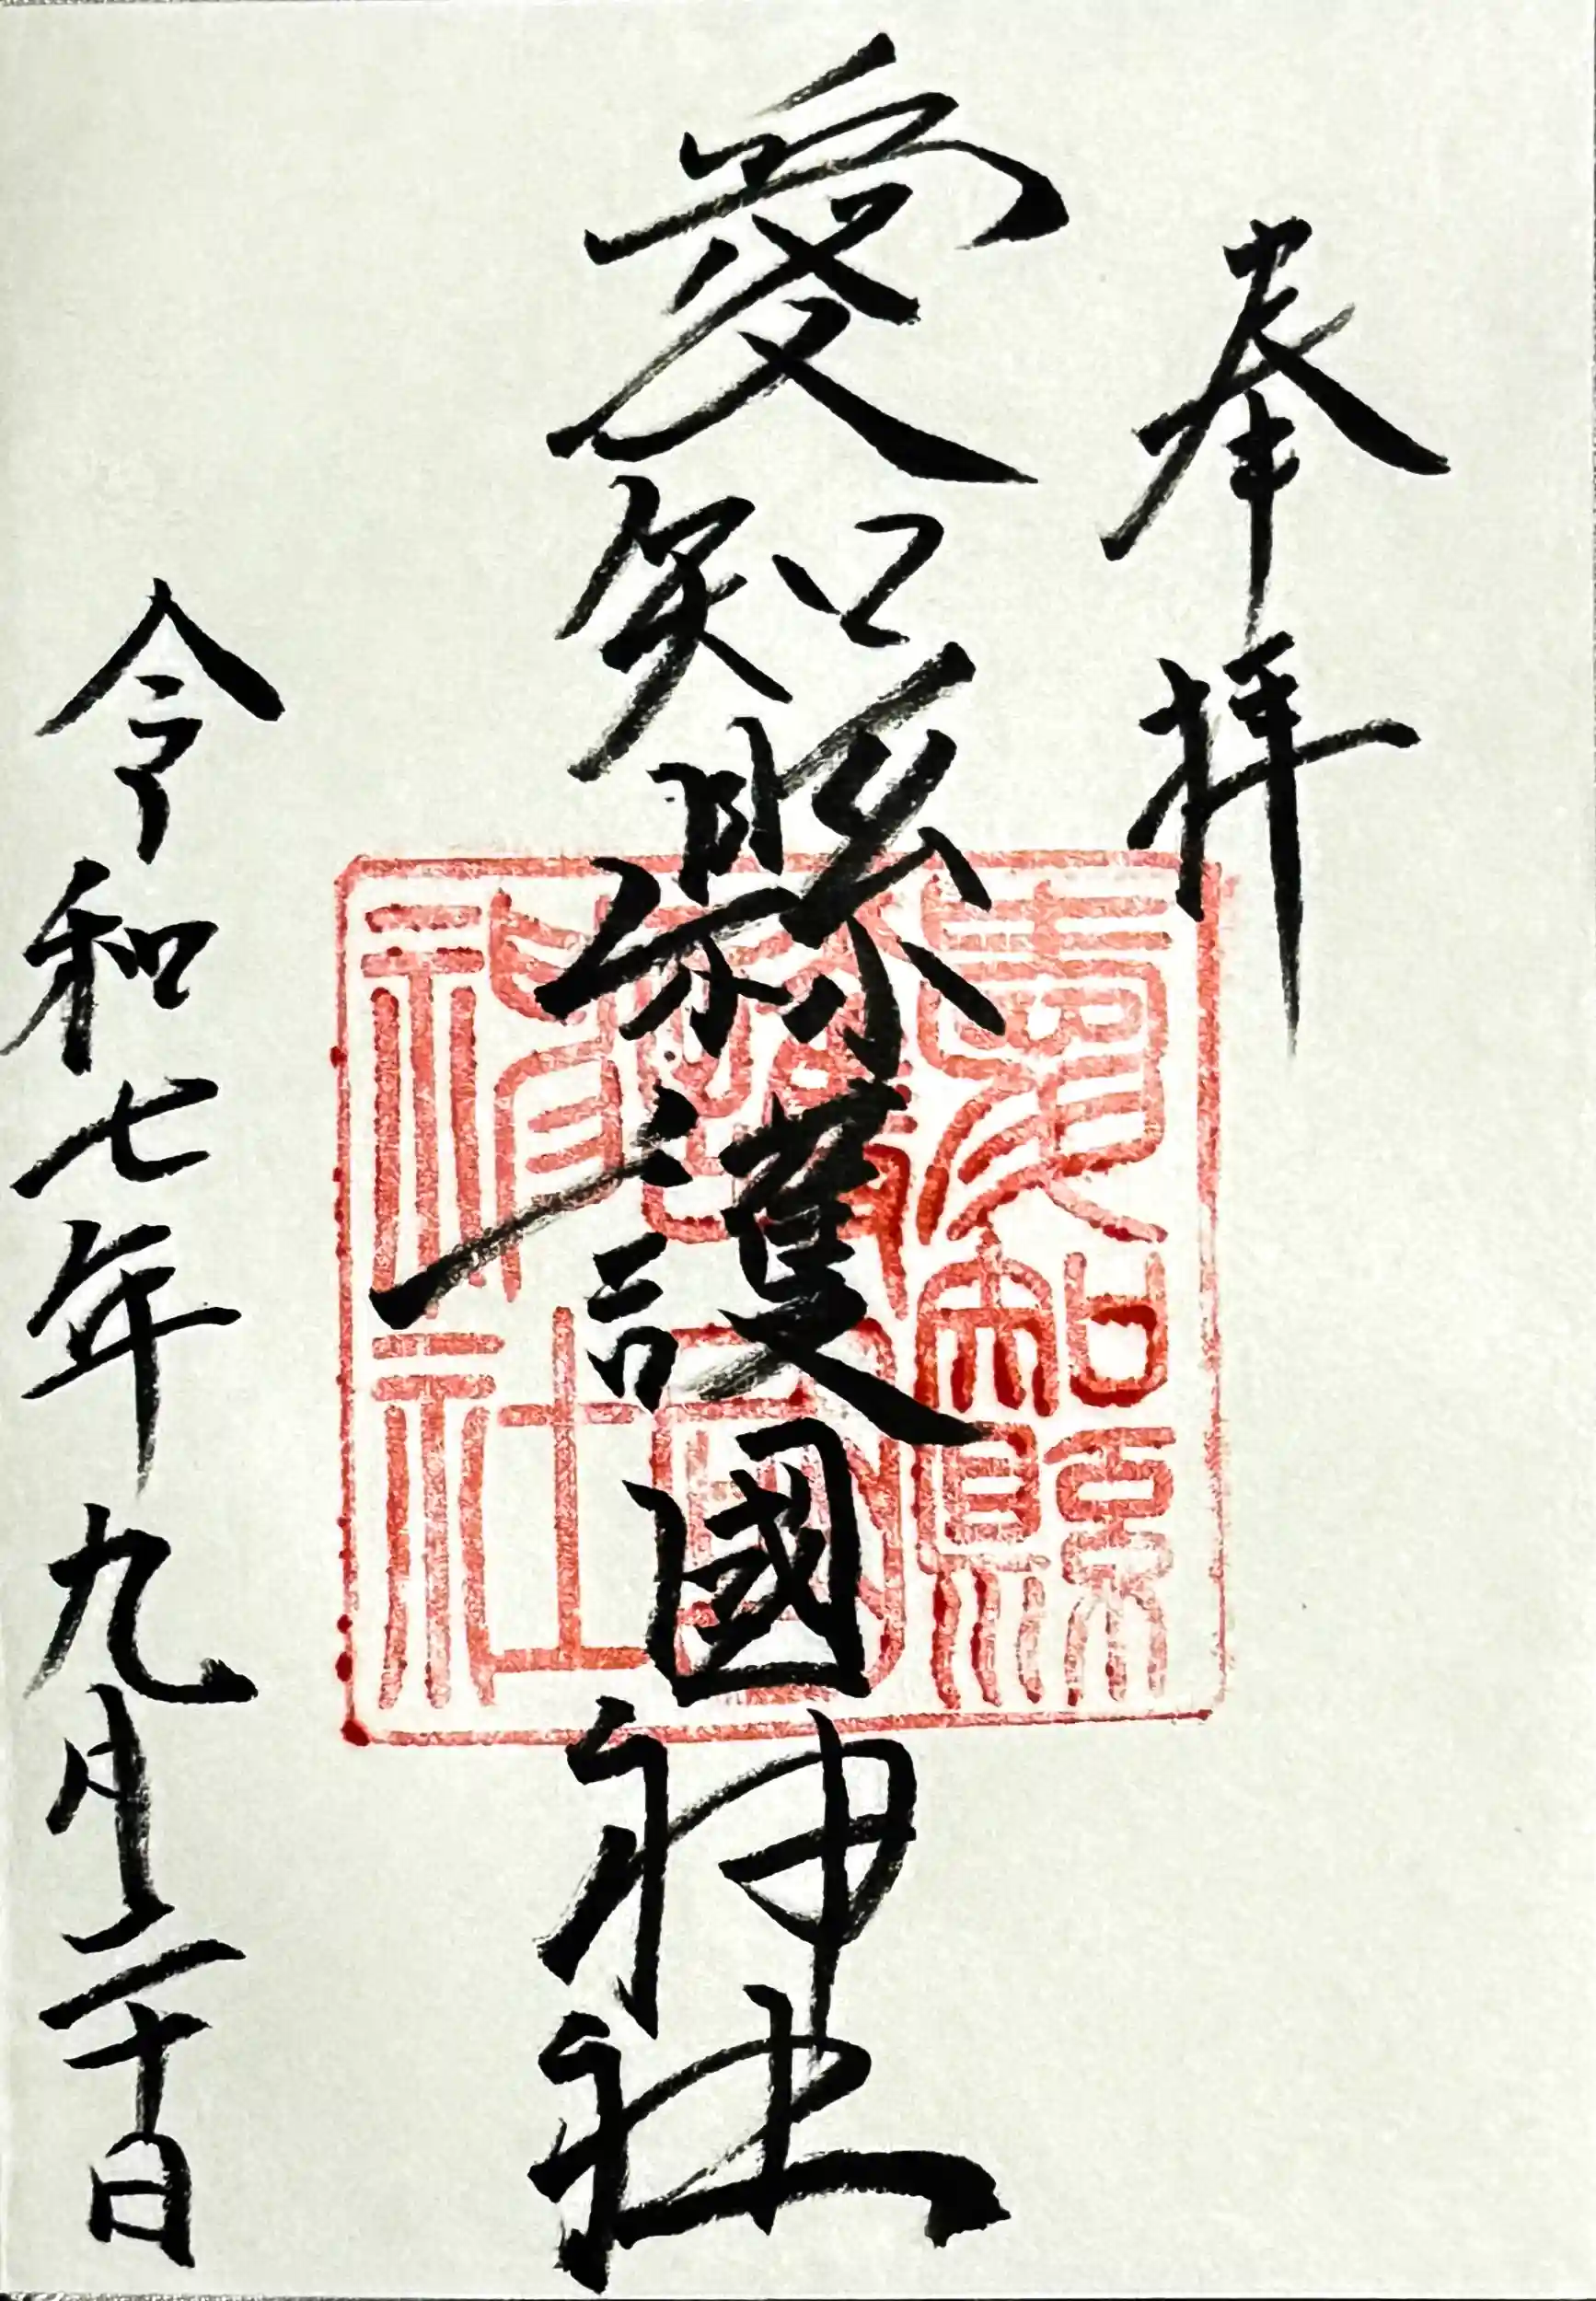 奉拝
愛知縣護國神社
令和七年九月二十日
愛知縣
護國
神社